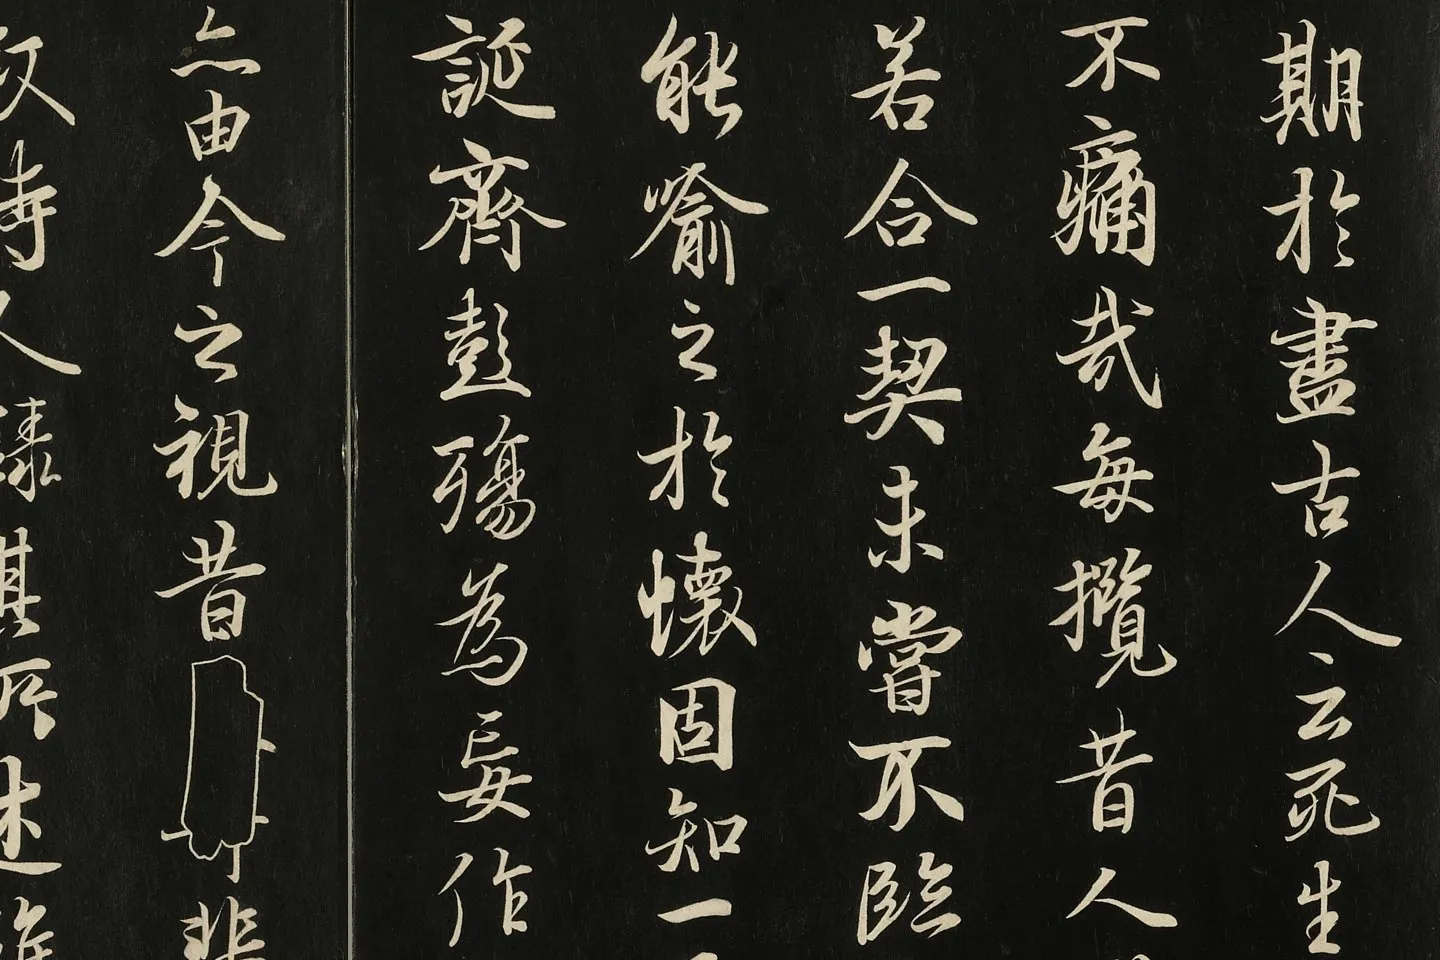 期於盡古人云死生
不痛哉每攬昔人
若合一契未嘗不臨
能喻之於懷固知一
誕齊彭殤為妄作
亦由今之視昔悲
叙時人錄其所述雖